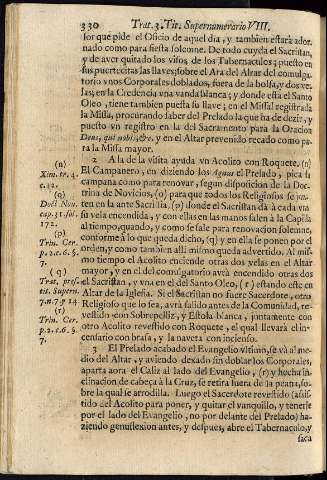 330 Trat. 3. Tit. Supernumerario VIII.
lor que pide el Oficio de aquel dia, y tambien estarà ador-
nado como para fiesta solemne. De todo cuyda el Sacristan,
y de aver quitado los visos de los Tabernaculos; puesto en
sus puertecitas las llaves; sobre el Ara del Altar del comulga-
torio vnos Corporales doblados, fuera de la bolsa, y dos ve-
las; en la Credencia vna vanda blanca; y donde està el Santo
Oleo, tiene tambien puesta su llave; en el Missal registrada
la Missa, procurando saber del Prelado la que ha de dezir, y
puesto vn registro en la del Sacramento para la Oracion
Deus, qui nobis, &c. y en el Altar prevenido recado como pa-
ra la Missa mayor.
2 A la de la visita ayuda vn Acolito con Roquete. (n)
El Campanero, en diziendo los Agnus el Prelado, pica la
campana como para renovar, segun disposicion de la Doc-
trina de Novicios, (o) para que todos los Religiosos se jun-
ten en la ante Sacristia. (p) donde el Sacristan dà à cada vno
su vela encendida, y con ellas en las manos salen à la Capilla
al tiempo, quando, y como se sale para renovacion solemne,
conforme à lo que queda dicho, (q) y en ella se ponen por el
orden, y como tambien alli mismo queda advertido. Al mis-
mo tiempo el Acolito enciende otras dos velas en el Altar
mayor, y en el del comulgatorio avrà encendido otras dos
el Sacristan, y vna en el del Santo Oleo, (r) estando este en
Altar de la Iglesia. Si el Sacristan no fuere Sacerdote, otro
Religioso que lo sea, avrà salido antes de la Comunidad, re-
vestido con Sobrepelliz, y Estola blanca, juntamente con
otro Acolito revestido con Roquete, el qual llevarà el in-
censario con brasa, y la naveta con incienso.
3 El Prelado acabado el Evangelio vltimo, se và al me-
dio del Altar, y aviendo dexado sin doblar los Corporales,
aparta aora el Caliz al lado del Evangelio, (r) y hecha in-
clinacion de cabeça à la Cruz, se retira fuera de la peana, so-
bre la qual se arrodilla. Luego el Sacerdote revestido (assis-
tido del Acolito para poner, y quitar el vanquillo, y tenerle
por el lado del Evangelio, no por delante del Prelado) ha-
ziendo genuflexion antes, y despues, abre el Tabernaculo, y
saca
(n)
Xim. tr. 4.
c. 12.
(o)
Doct. Nov.
cap. 31. fol.
172.
(p)
Trin. Cer.
p. 2. t. 6. §.
7.
(q)
Trat. pres.
tit. Supern.
7. n. 7. y 14
(r)
Trin. Cer.
p. 2. t. 6. §.
7.